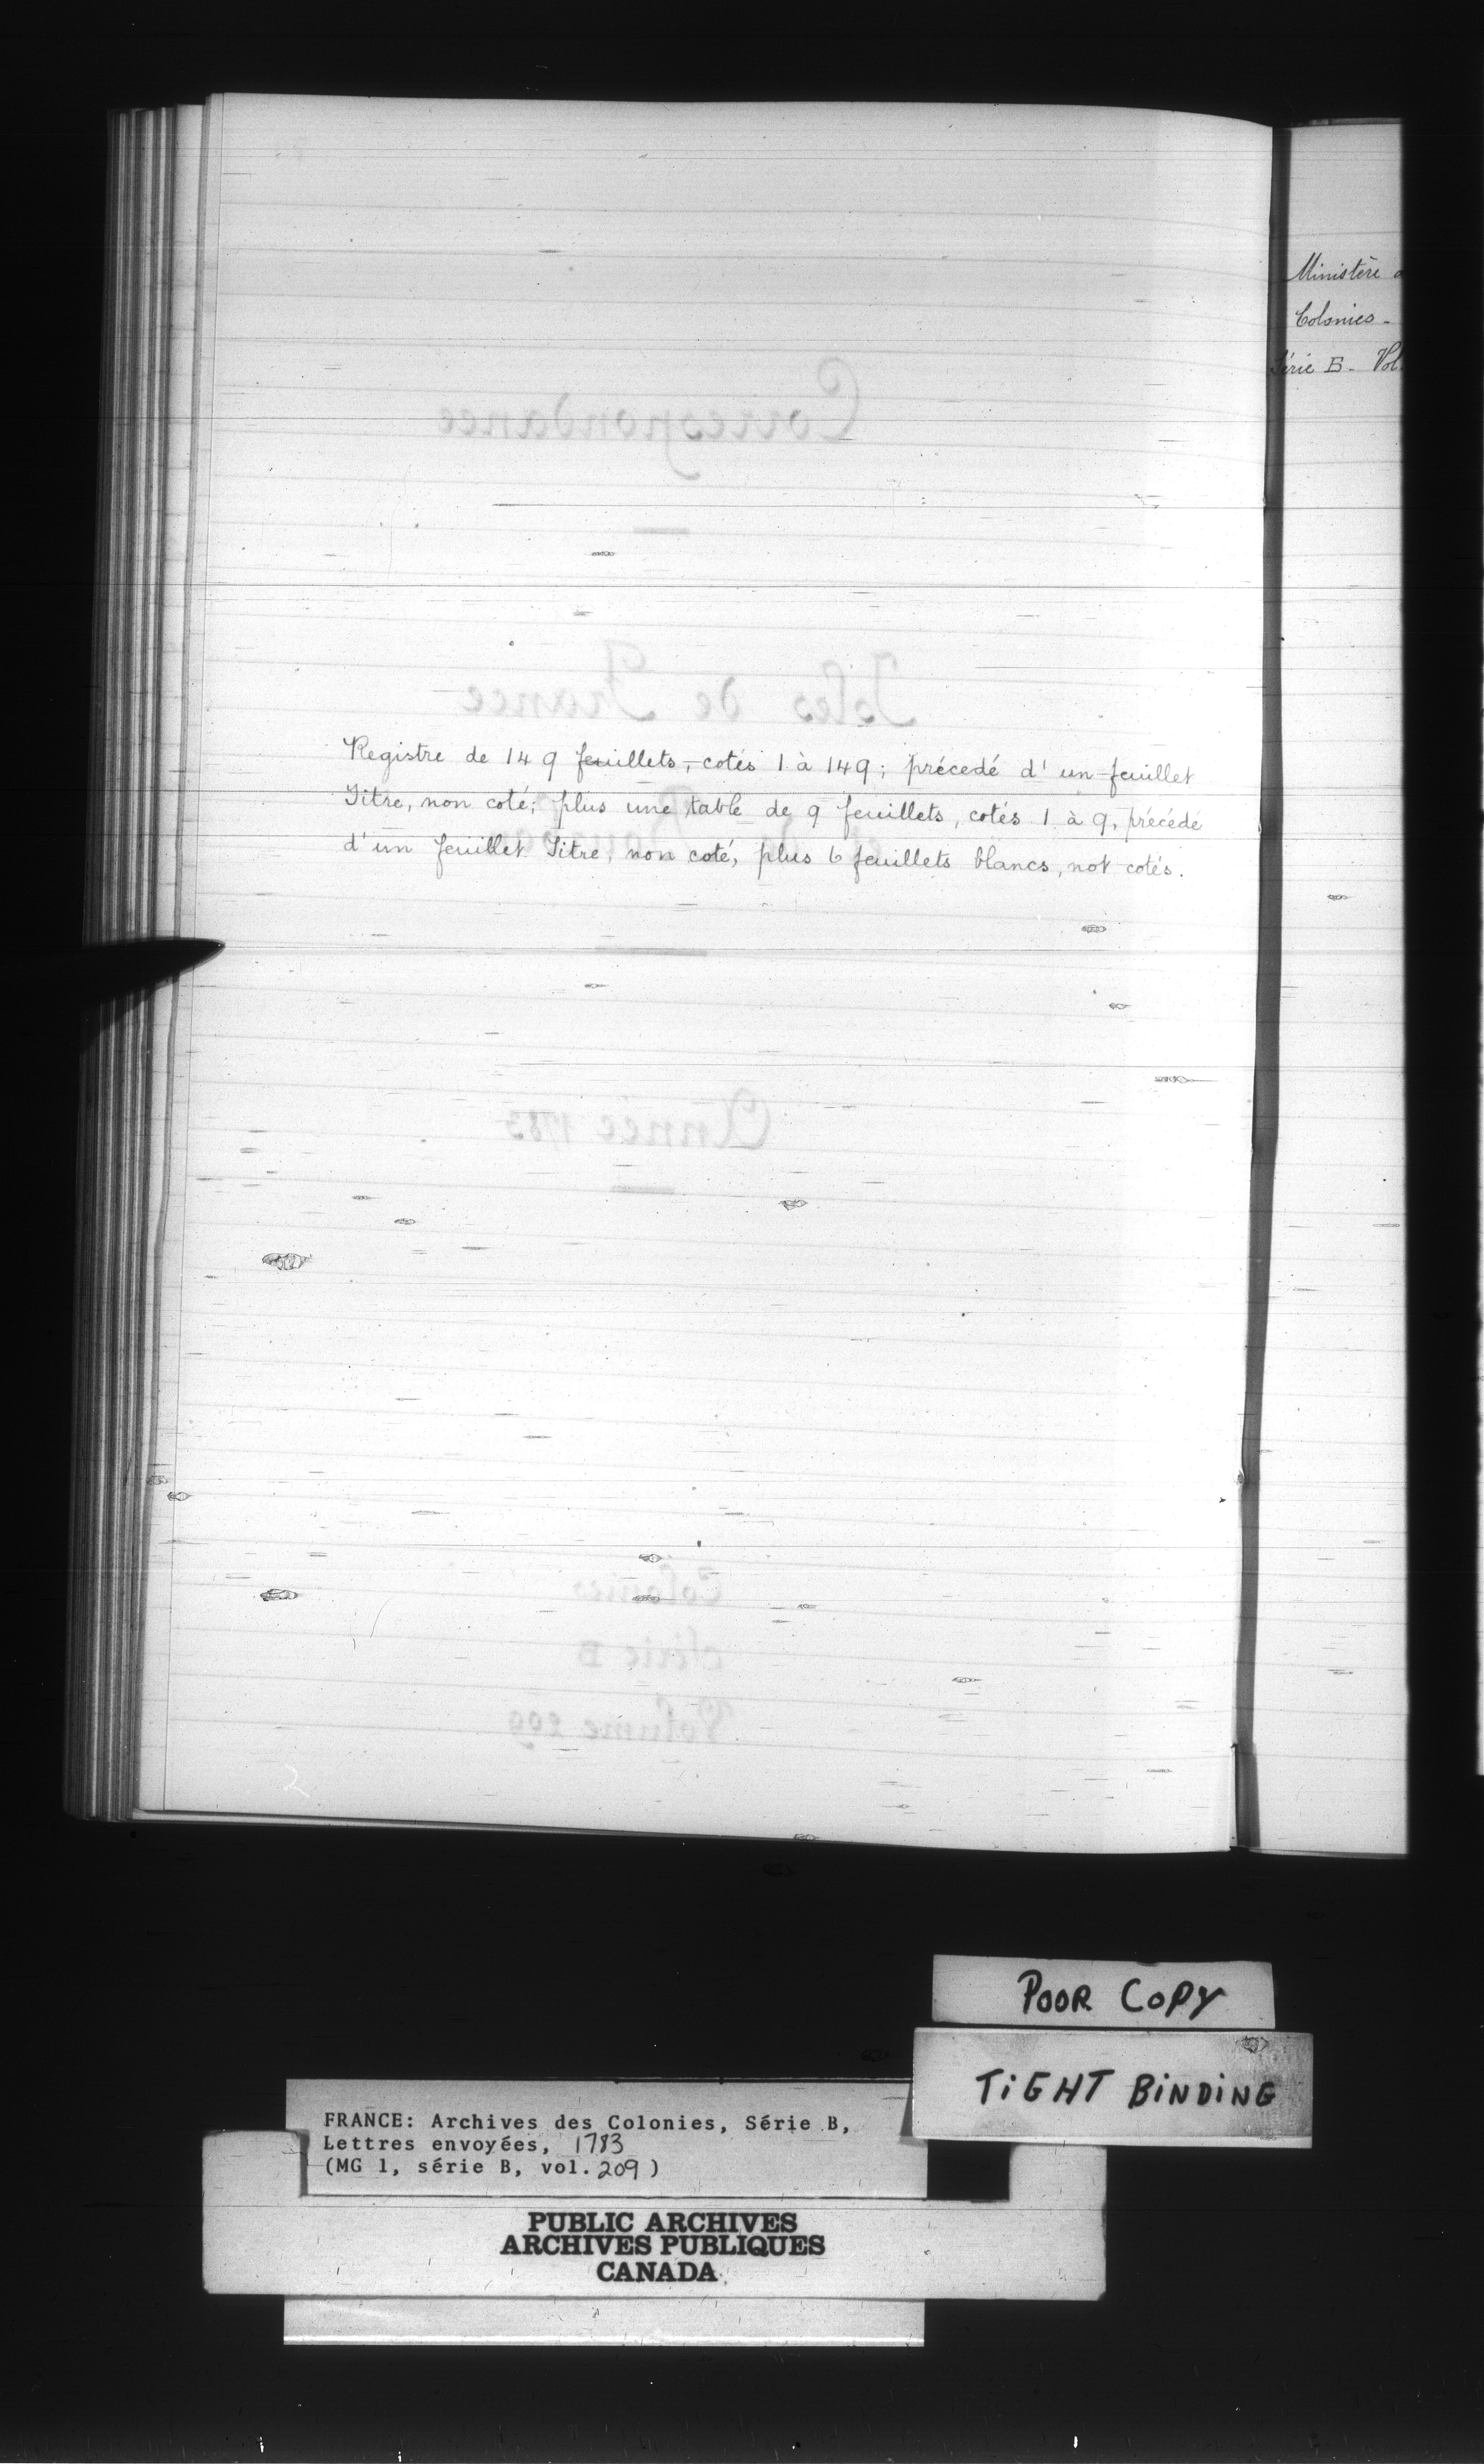 Registre de 149 feuillets, cotés 1 à 149; précedé d'un feuillet
Titre, non coté; plus une table de 9 feuillets, cotés 1 à 9, précédé
d'un feuillet Titre, non coté, plus 6 feuillets blancs, not cotés.
Ministère
Colonies -
Série B - Vol.
Correspondance
Isles de France
Année 1783
Colonies
Série B
Volume 209
POOR COPY
TIGHT BINDING
FRANCE: Archives des Colonies, Série B,
Lettres envoyées, 1783
(MG 1, série B, vol. 209)
PUBLIC ARCHIVES
ARCHIVES PUBLIQUES
CANADA